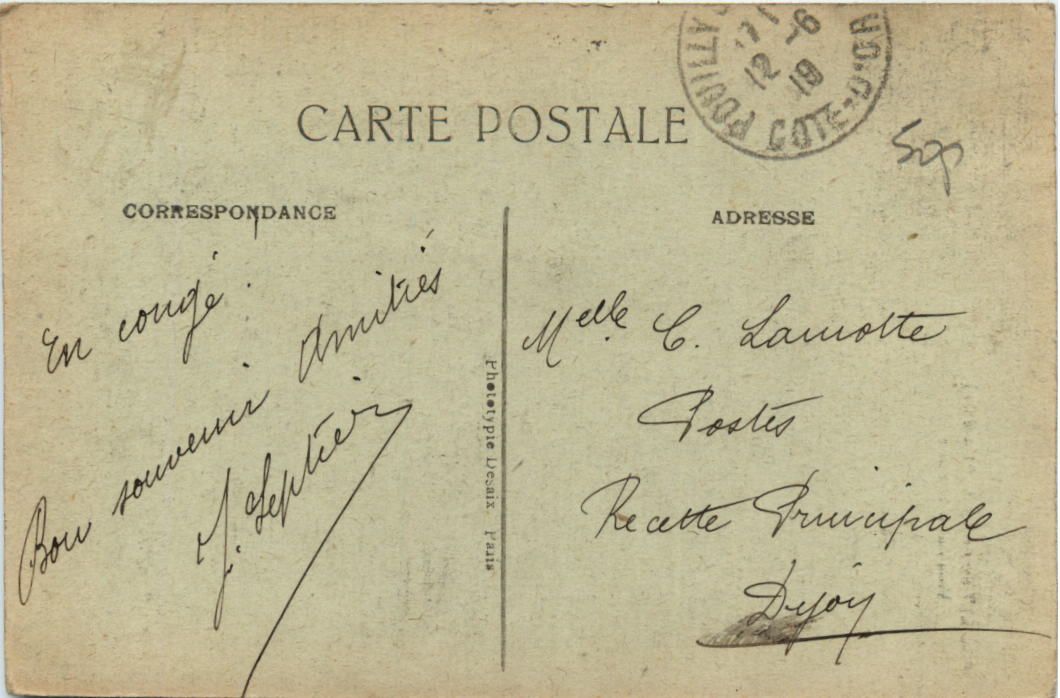 CARTE POSTALE
POUILLY
COTE-D'OR
12 -6
19
CORRESPONDANCE
ADRESSE
En congé.
Bon souvenir Amitiés
J. Septier
Phototypie Desaix Paris
Melle. C. Lamotte
Postes
Recette Principale
Dijon